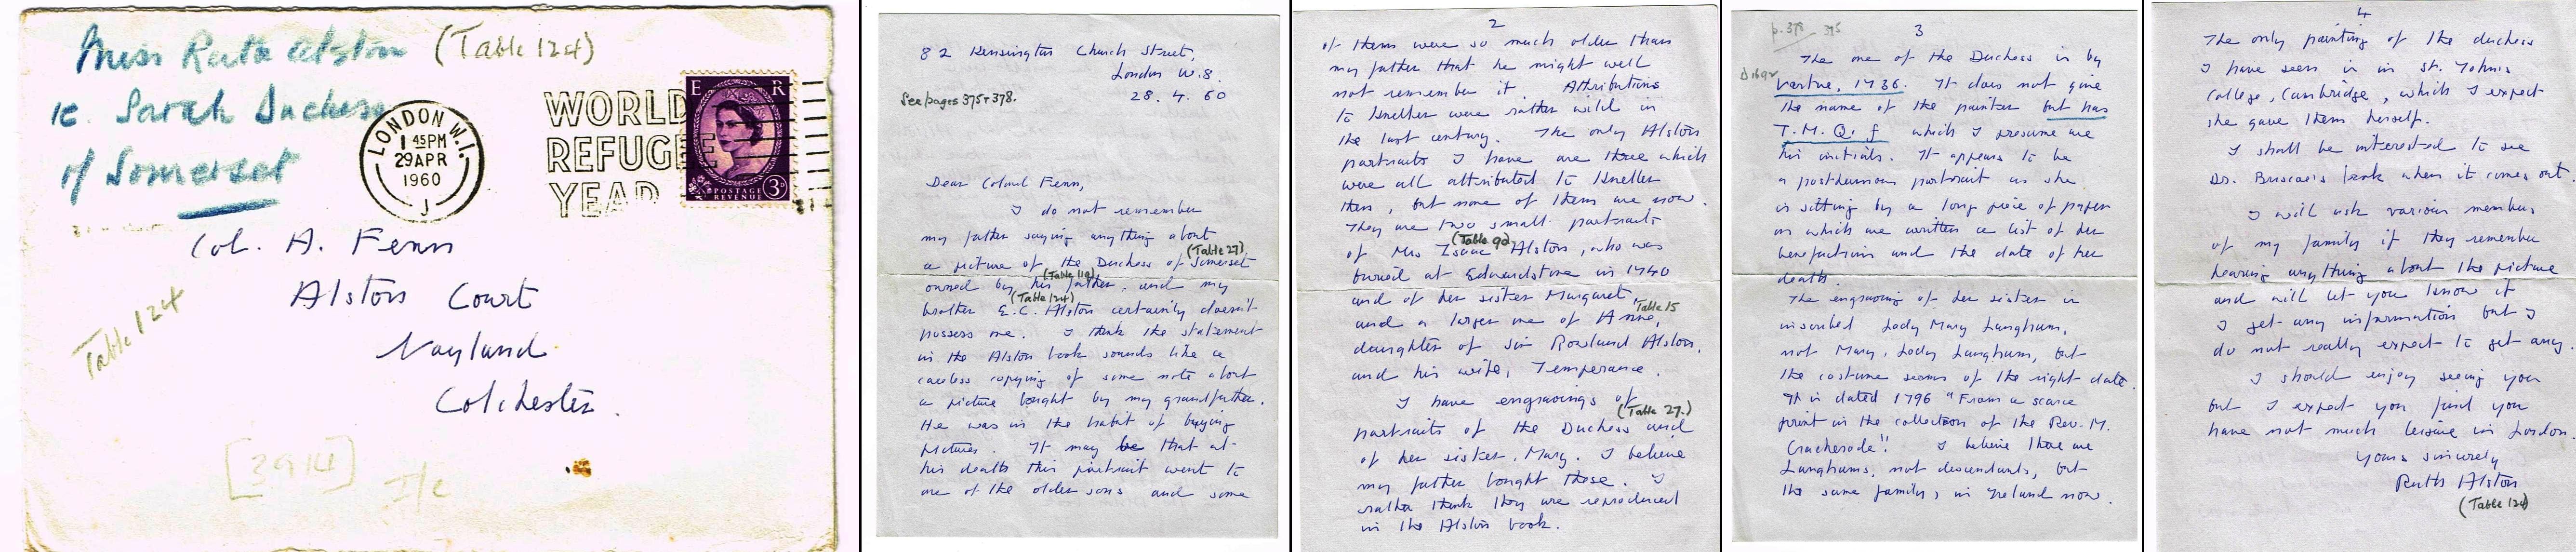 Miss Ruth Alston (Table 124)
re. Sarah Duchess
of Somerset
LONDON W.1.
1 45PM
29 APR
1960
J
WORLD
REFUGEE
YEAR
E R
POSTAGE
REVENUE
3D
Col. A. Fenn
Alston Court
Nayland
Colchester.
Table 124
[3914]
I/c
82 Kensington Church Street,
London W.8.
See pages 375+378.
28. 4. 60
Dear Colonel Fenn,
I do not remember
my father saying anything about
(Table 27)
a picture of the Duchess of Somerset
(Table 119)
owned by his father, and my
(Table 124)
brother E.C. Alston certainly doesn't
possess one. I think the statement
in the Alston book sounds like a
careless copying of some note about
a picture bought by my grandfather.
He was in the habit of buying
pictures. It may be that at
his death this portrait went to
one of the older sons and some
2
of them were so much older than
my father that he might well
not remember it. Attributions
to Kneller were rather wild in
the last century. The only Alston
portraits I have are three which
were all attributed to Kneller
then, but none of them are now.
They are two small portraits
(Table 9a)
of Mrs Isaac Alston, who was
buried at Edwardstone in 1740
and of her sister Margaret,
Table 15
and a larger one of Anne,
daughter of Sir Rowland Alston,
and his wife, Temperance.
I have engravings of
(Table 27.)
portraits of the Duchess and
of her sister, Mary. I believe
my father bought these. I
rather think they are reproduced
in the Alston book.
p. 378 375
3
The one of the Duchess is by
Vertue, 1736. It does not give
the name of the painter but has
T. M. Q. f which I presume are
his initials. It appears to be
a posthumous portrait as she
is sitting by a long piece of paper
on which are written a list of her
benefactions and the date of her
death.
The engraving of her sister is
inscribed Lady Mary Langham,
not Mary, Lady Langham, but
the costume seems of the right date.
It is dated 1796 "From a scarce
print in the collection of the Rev. M.
Cracherode". I believe there are
Langhams, not descendants, but
the same family, in Ireland now.
4
The only painting of the duchess
I have seen is in St. John's
College, Cambridge, which I expect
she gave them herself.
I shall be interested to see
Dr. Briscoe's book when it comes out.
I will ask various members
of my family if they remember
hearing anything about the picture
and will let you know if
I get any information but I
do not really expect to get any.
I should enjoy seeing you
but I expect you find you
have not much leisure in London.
Yours sincerely
Ruth Alston
(Table 124)